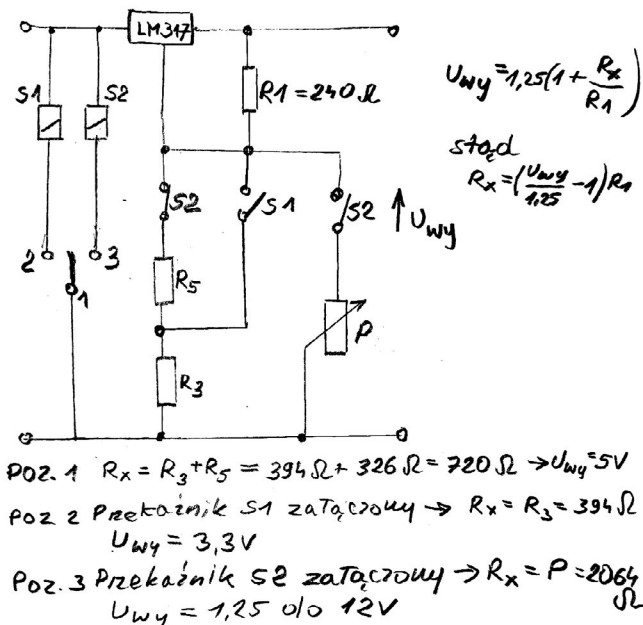 LM317
S1
S2
R1=240Ω
Uwy=1,25(1+Rx/R1)
stąd
Rx=(Uwy/1,25-1)R1
S2
S1
S2
Uwy
2
3
1
R5
P
R3
POZ.1 Rx=R3+R5=394Ω+326Ω=720Ω→Uwy=5V
POZ 2 Przekaźnik S1 załączony → Rx=R3=394Ω
Uwy=3,3V
Poz.3 Przekaźnik S2 załączony → Rx=P=2064
Ω
Uwy=1,25 do 12V